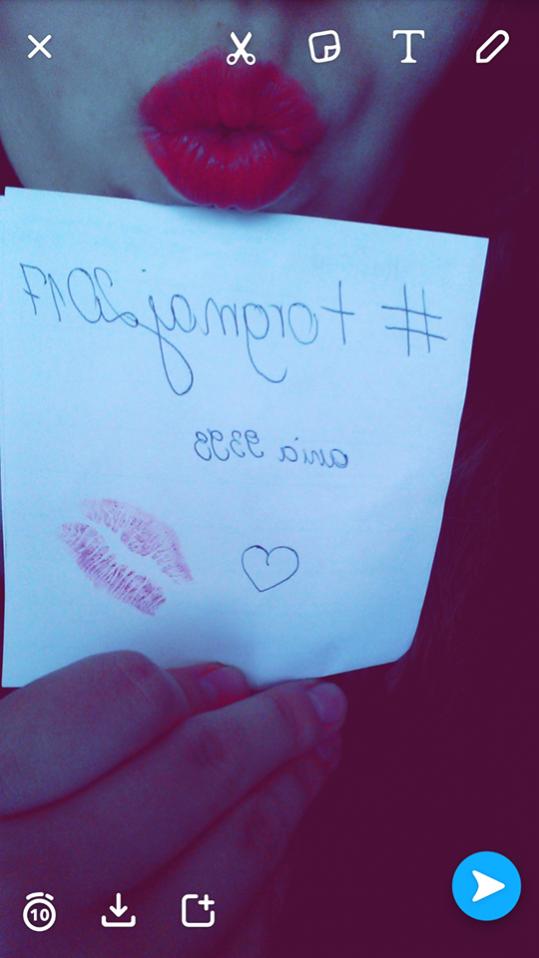 T
#torgmaj2017
ania 9393
10